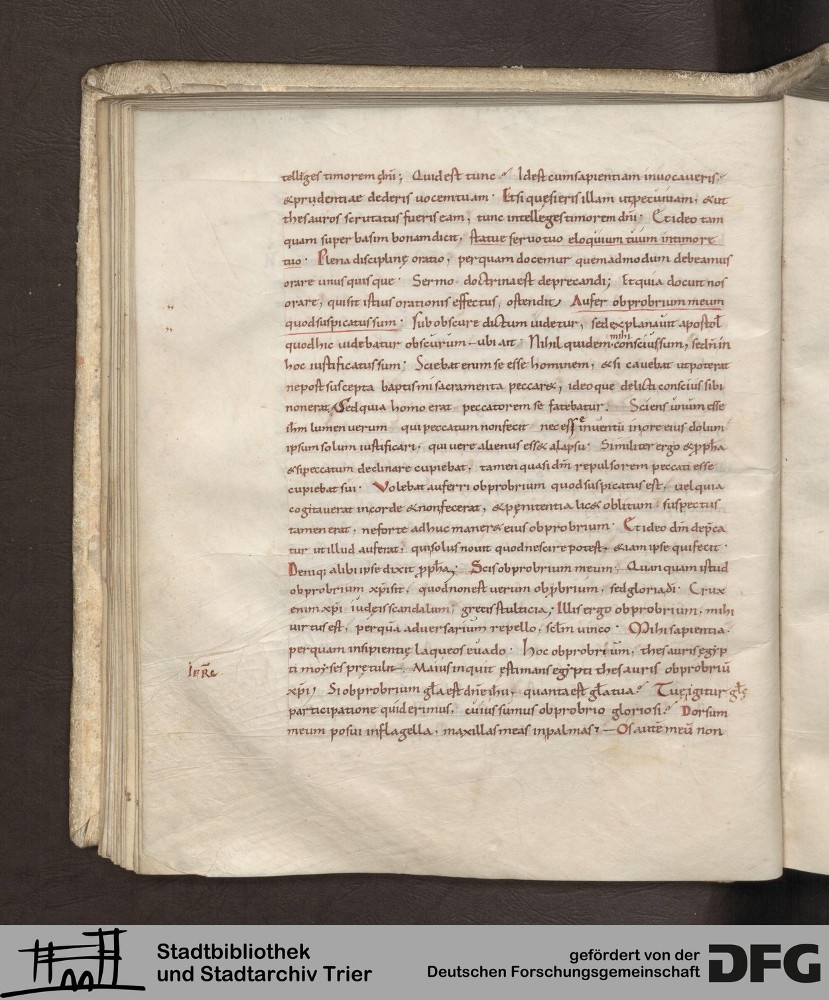 telliges timorem dni; Quid est tunc? Id est cum sapientiam invocaveris.
& prudentiae dederis uocem tuam. Et si quesieris illam ut pecuniam, & ut
thesauros scrutatus fueris eam, tunc intelleges timorem dni. Et ideo tam
quam super basim bonam dicit, statue seruo tuo eloquium tuum in timore
tuo. Plena disciplinę oratio, per quam docemur quemadmodum debeamus
orare unus quisque. Sermo doctrina est deprecandi; Et quia docuit nos
orare, quis sit istius orationis effectus, ostendit; Aufer obprobrium meum
quod suspicatus sum. Sub obscure dictum uidetur, sed explanauit apostol
quod hic uidebatur obscurum ubi ait. Nihil quidem mihi conscius sum, sed n in
hoc iustificatus sum; Sciebat enim se esse hominem, & si cauebat ut poterat
ne post suscepta baptismi sacramenta peccar&, ideoque delicti conscius sibi
non erat, Sed quia homo erat peccatorem se fatebatur. Sciens unum esse
ihm lumen uerum qui peccatum non fecit nec est inuentũ in ore eius dolum
ipsum solum iustificari, qui uere alienus ess& a lapsu. Similiter ergo & ppha
& si peccatum declinare cupiebat, tamen quasi dm repulsorem peccati esse
cupiebat sui. Volebat auferri obprobrium quod suspicatus est, uel quia
cogitauerat in corde & non fecerat, & pęnitentia lic& oblitum suspectus
tamen erat, ne forte adhuc maner& eius obprobrium. Et ideo dm depca
tur ut illud auferat, qui solus nouit quod nescire potest, etiam ipse qui fecit.
Deniq; alibi ipse dixit ppha; Scis obprobrium meum; Quanquam istud
obprobrium xpi sit, quod non est uerum obprbrium, sed gloria di. Crux
enim xpi iudęis scandalum, grecis stultitia; Illis ergo obprobrium, mihi
uirtus est, per quã aduersarium repello, sclm uinco. Mihi sapientia.
per quam insipientię laqueos euado. Hoc obprobrium, thesauris egyp
ti moyses pretulit. Maius inquit ęstimans egypti thesauris obprobriũ
xpi; Si obprobrium gla est dne ihu, quanta est gla tua? Tuę igitur glę
participatione quid erimus, cuius sumus obprobrio gloriosi? Dorsum
meum posui in flagella, maxillas meas in palmas; Os autẽ meũ non